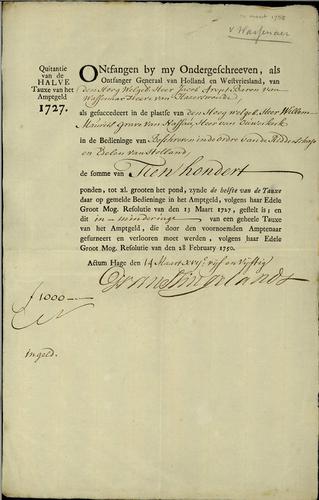 maart 1755
v Wassenaer
Quitantie
van de
HALVE
Tauxe van het
Amptgeld
1727.
ONtfangen by my Ondergeschreeven, als
Ontfanger Generaal van Holland en Westvriesland, van
den Hoog Welgeb. Heer Jacob Arent Baron van
Wassenaar Heere van
als gesuccedeert in de plaatse van den Hoog welgeb. Heer Willem
Maurits Grave van Nassau, Heer van Ouwerkerk
in de Bedieninge van Beschreven in de ordre van de Ridderschap
en Edelen van Holland,
de somme van Tien hondert
ponden, tot xl. grooten het pond, zynde de helfte van de Tauxe
daar op gemelde Bedieninge in het Amptgeld, volgens haar Edele
Groot Mog. Resolutie van den 13 Maart 1727, gestelt is; en
dit in minderinge van een geheele Tauxe
van het Amptgeld, die door den voornoemden Amptenaar
gefurneert en verlooren moet werden, volgens haar Edele
Groot Mog. Resolutie van den 28 February 1750.
Actum Hage den 14 Maart XVIIc vijf en Vijftig
ƒ 1000 —
in geld.